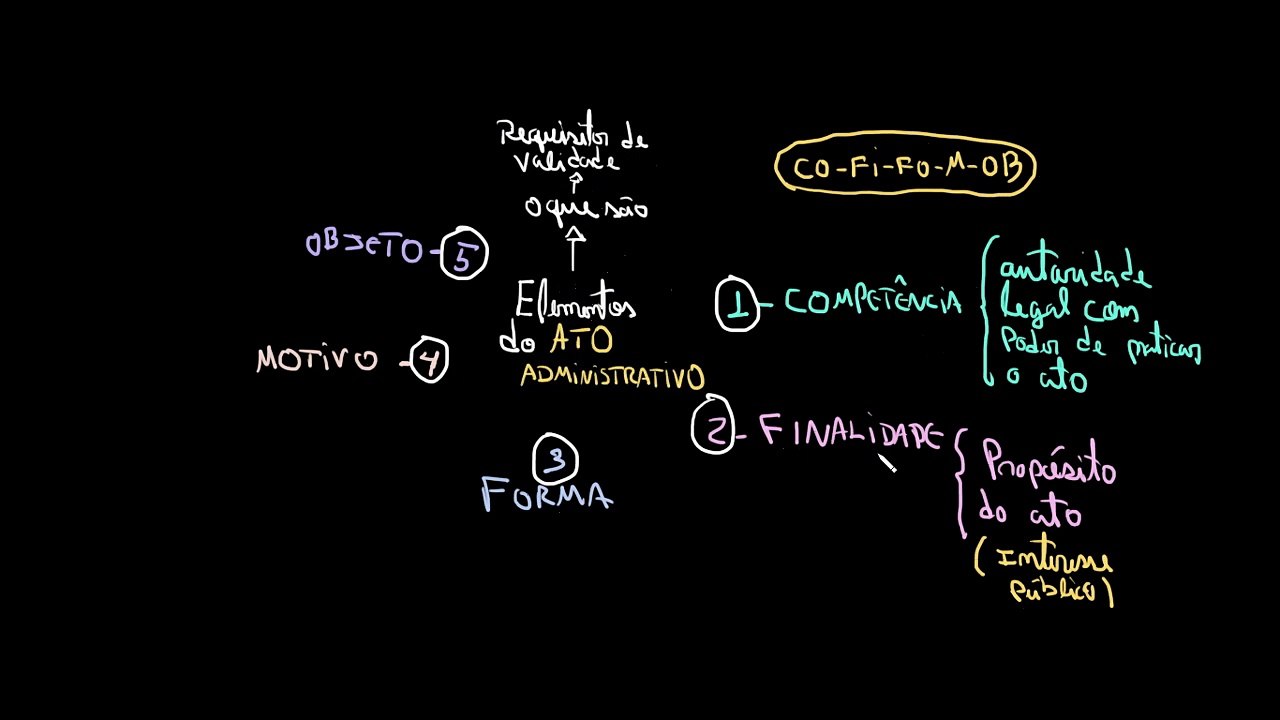 Requisitos de
validade
O que são
Elementos
do ATO
ADMINISTRATIVO
CO-Fi-FO-M-OB
1 - COMPETÊNCIA
autoridade
legal com
Poder de praticar
o ato
2 - FINALIDADE
Propósito
do ato
(Interesse
público)
3
FORMA
MOTIVO - 4
OBJETO - 5